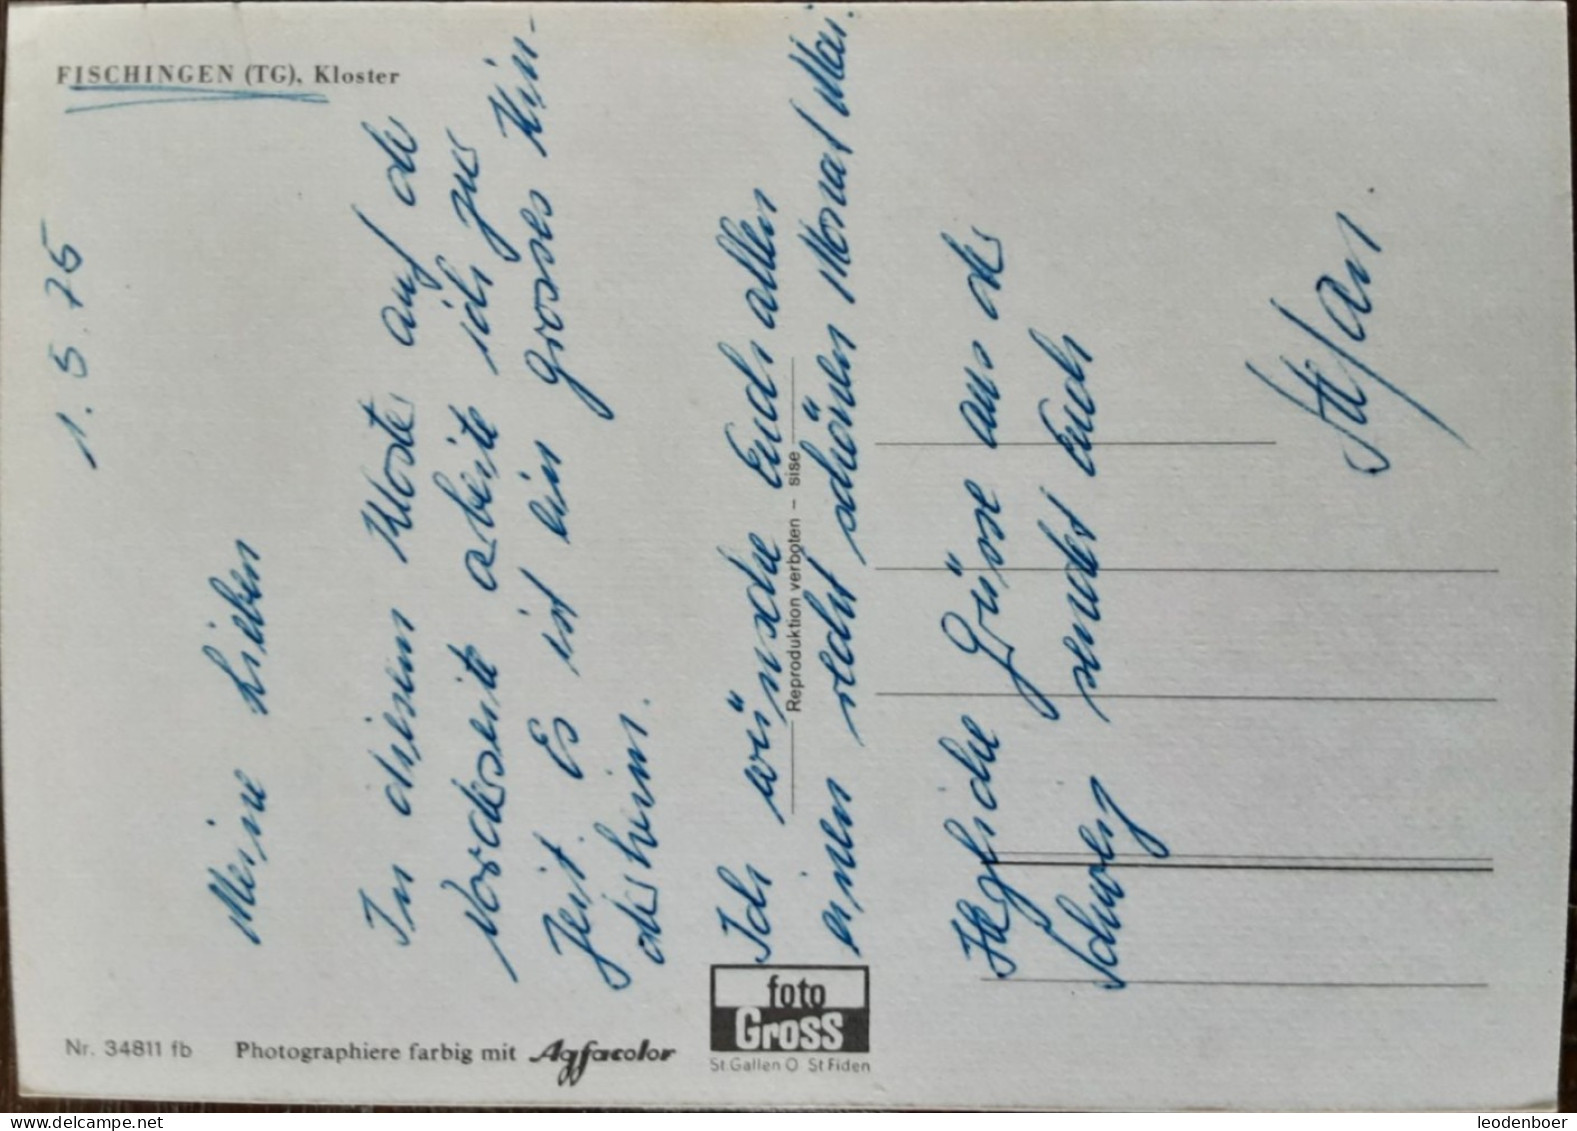 FISCHINGEN (TG), Kloster
1. 5. 75
Meine Lieben
In diesem Kloster auf der
Vorderseite arbeite ich zur
Zeit. Es ist ein Grosses Kin-
derheim.
Ich wünsche Euch allen
einen recht schönen Monat Mai.
Herzliche Grüsse aus der
Schweiz sendet Euch
Stefan.
Reproduktion verboten – sise
Nr. 34811 fb
Photographiere farbig mit Agfacolor
foto
Gross
St Gallen O St Fiden
leodenboer